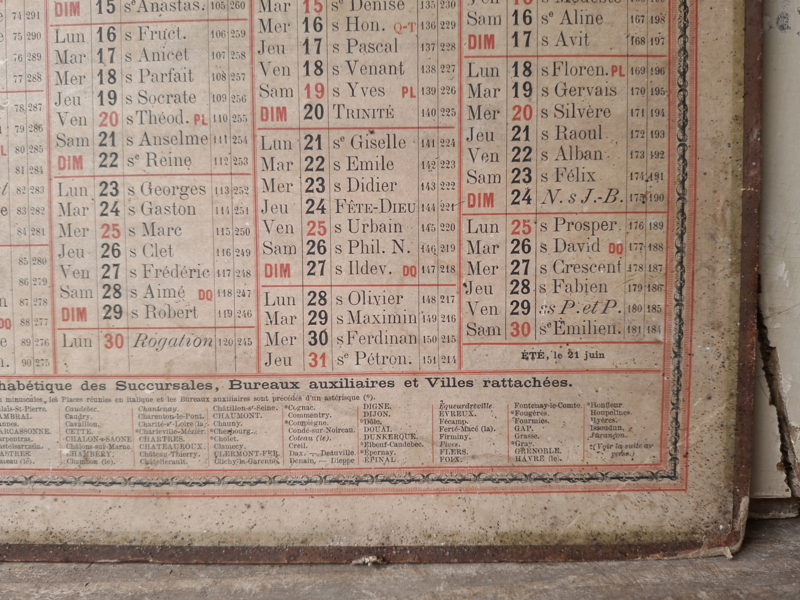 74 291
75 290
76 289
77 288
78 287
79 286
80 285
81 284
82 283
83 282
84 281
85 280
86 279
87 278
88 277
89 276
90 275
DIM 15 sᵉ Anastas. 105 260
Lun 16 s Fruct. 106 259
Mar 17 s Anicet 107 258
Mer 18 s Parfait 108 257
Jeu 19 s Socrate 109 256
Ven 20 s Théod. PL 110 255
Sam 21 s Anselme 111 254
DIM 22 sᵉ Reine 112 253
Lun 23 s Georges 113 252
Mar 24 s Gaston 114 251
Mer 25 s Marc 115 250
Jeu 26 s Clet 116 249
Ven 27 s Frédéric 117 248
Sam 28 s Aimé DQ 118 247
DIM 29 s Robert 119 246
Lun 30 Rogation 120 245
Mar 15 sᵉ Denise 135 230
Mer 16 s Hon. Q-T 136 229
Jeu 17 s Pascal 137 228
Ven 18 s Venant 138 227
Sam 19 s Yves PL 139 226
DIM 20 TRINITÉ 140 225
Lun 21 sᵉ Giselle 141 224
Mar 22 s Emile 142 223
Mer 23 s Didier 143 222
Jeu 24 FÊTE-DIEU 144 221
Ven 25 s Urbain 145 220
Sam 26 s Phil. N. 146 219
DIM 27 s Ildev. DQ 147 218
Lun 28 s Olivier 148 217
Mar 29 s Maximin 149 216
Mer 30 s Ferdinan 150 215
Jeu 31 sᵉ Pétron. 151 214
Sam 16 sᵉ Aline 167 198
DIM 17 s Avit 168 197
Lun 18 s Floren. PL 169 196
Mar 19 s Gervais 170 195
Mer 20 s Silvère 171 194
Jeu 21 s Raoul 172 193
Ven 22 s Alban 173 192
Sam 23 s Félix 174 191
DIM 24 N. s J.-B. 175 190
Lun 25 s Prosper 176 189
Mar 26 s David DQ 177 188
Mer 27 s Crescent 178 187
Jeu 28 s Fabien 179 186
Ven 29 ss P. et P. 180 185
Sam 30 sᵉ Emilien. 181 184
ÉTÉ, le 21 juin
habétique des Succursales, Bureaux auxiliaires et Villes rattachées.
minuscules, les Places réunies en italique et les Bureaux auxiliaires sont précédés d'un astérisque (*).
alais-St-Pierre.
AMBRAI.
annes.
ARCASSONNE.
arpentras.
ASTRES.
Caudebec.
Caudry.
Cavaillon.
CETTE.
CHALON-s-SAONE
Châlons-sur-Marne.
CHAMBÉRY.
Chantenay.
Charenton-le-Pont.
Charité-s-Loire (la).
Charleville-Mézièr.
CHARTRES.
CHATEAUROUX.
Château-Thierry.
Châtellerault.
Châtillon-s-Seine.
CHAUMONT.
Chauny.
*Cherbourg.
*Cholet.
CLERMONT-FER.
Clichy-la-Garenne.
*Cognac.
Commentry.
*Compiègne.
Condé-sur-Noireau.
Coteau (le).
Creil.
Dax. — Deauville.
Denain. — Dieppe
DIGNE.
DIJON.
*Dôle.
DOUAI.
DUNKERQUE.
*Elbeuf-Caudebec.
*Epernay.
EPINAL.
Equeurdreville
EVREUX.
Fécamp.
Ferté-Macé (la).
Firminy.
Flers.
FLERS.
FOIX.
Fontenay-le-Comte.
*Fougères.
Fourmies.
GAP.
Grasse.
*Gray.
GRENOBLE.
HAVRE (le).
*Honfleur.
Houpelines.
*Hyères.
Issoudun.
Jarançon.
(Voir la suite au